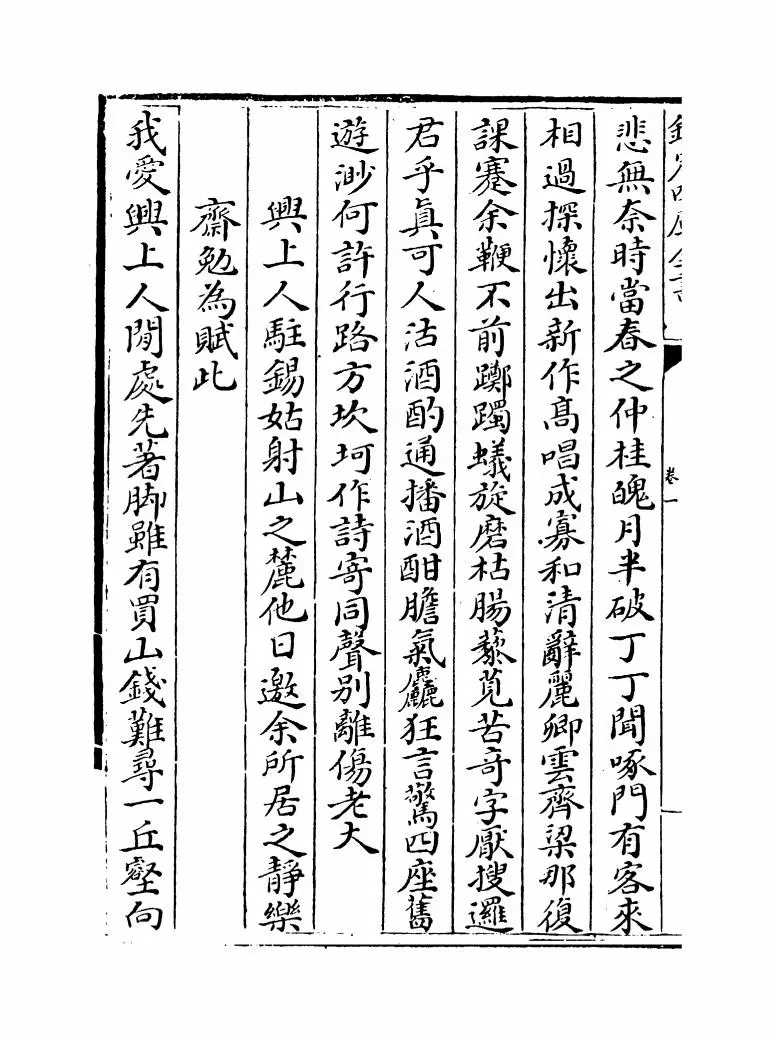 欽定四庫全書
卷一
悲無奈時當春之仲桂魄月半破丁丁聞啄門有客來
相過探懷出新作高唱成寡和清辭麗卿雲齊梁那復
課蹇余鞭不前躑躅蟻旋磨枯腸藜莧苦奇字厭搜邏
君乎真可人沽酒酌通播酒酣膽氣麤狂言驚四座舊
遊渺何許行路方坎坷作詩寄同聲別離傷老大
興上人駐錫姑射山之麓他日邀余所居之靜樂
齋勉為賦此
我愛興上人閒處先著脚雖有買山錢難尋一丘壑向